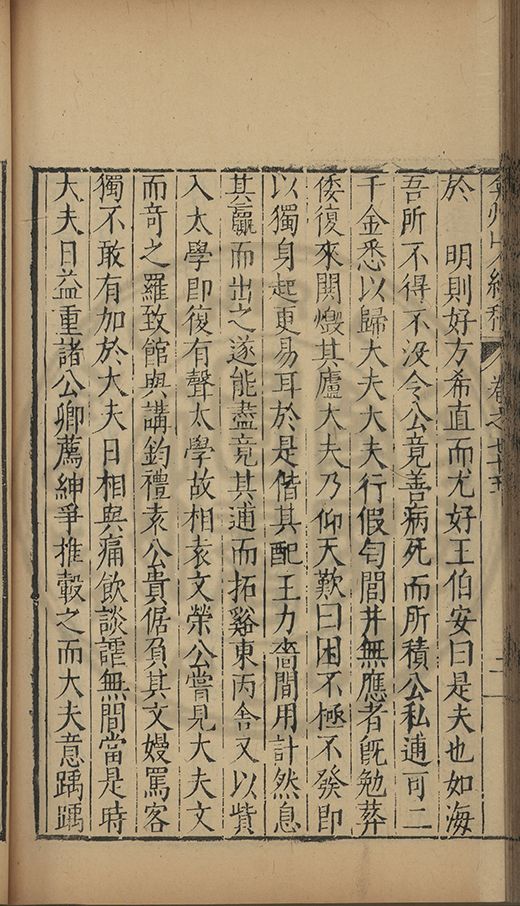 弇州山人續稿 卷之七十五 二
於 明則好方希直而尤好王伯安曰是夫也如海
吾所不得不沒今公竟善病死而所積公私逋可二
千金悉以歸大夫大夫行假匄閭井無應者旣勉葬
倭復來閧燬其廬大夫乃仰天歎曰困不極不發即
以獨身起更易耳於是偕其配王力嗇間用計然息
其贏而出之遂能盡竟其逋而拓谿東丙舍又以貲
入太學即復有聲太學故相袁文榮公嘗見大夫文
而奇之羅致館與講鈞禮袁公貴倨負其文嫚罵客
獨不敢有加於大夫日相與痛飲談謔無間當是時
大夫日益重諸公卿薦紳爭推轂之而大夫意踽踽